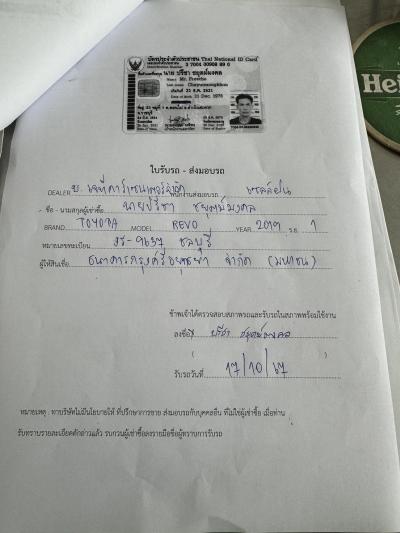 บัตรประจำตัวประชาชน Thai National ID Card
3 7001 00908 89 0
นาย ปรีชา ชยุตม์มงคล
Name Mr. Preecha
Last name Chayutmongkhon
เกิดวันที่ 21 ธ.ค. 2521
Date of Birth 21 Dec. 1978
Hei
ใบรับรถ - ส่งมอบรถ
DEALER บ. เจที คาร์เซนเตอร์ จำกัด พนักงานส่งมอบรถ
ชื่อ - นามสกุลผู้เช่าซื้อ นายปรีชา ชยุตม์มงคล
BRAND TOYOTA MODEL REVO YEAR 2019 ร.ย. 1
หมายเลขทะเบียน 9637 ชลบุรี
ผู้ให้สินเชื่อ ธนาคารกรุงศรีอยุธยา จำกัด (มหาชน)
ข้าพเจ้าได้ตรวจสอบสภาพรถและรับรถในสภาพพร้อมใช้งาน
ลงชื่อ ปรีชา ชยุตม์มงคล
( )
รับรถวันที่ 17/10/67
หมายเหตุ : ทางบริษัทไม่มีนโยบายให้ ที่ปรึกษาการขาย ส่งมอบรถกับบุคคลอื่น ที่ไม่ใช่ผู้เช่าซื้อ เมื่อท่าน
รับทราบรายละเอียดดังกล่าวแล้ว รบกวนผู้เช่าซื้อลงรายมือชื่อผู้ทราบการรับรถ